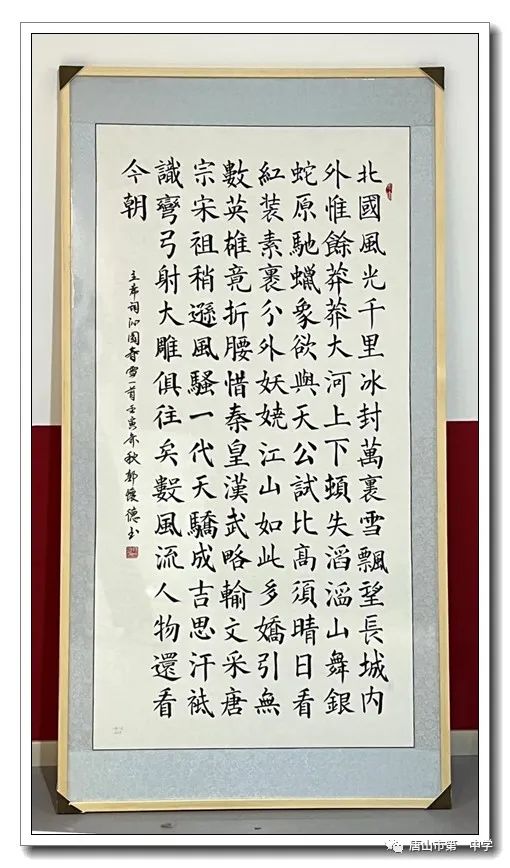 北國風光千里冰封萬裏雪飄望長城內
外惟餘莽莽大河上下頓失滔滔山舞銀
蛇原馳蠟象欲與天公試比高須晴日看
紅装素裹分外妖嬈江山如此多嬌引無
數英雄竟折腰惜秦皇漢武略輸文采唐
宗宋祖稍遜風騷一代天驕成吉思汗祗
識彎弓射大雕俱往矣數風流人物還看
今朝
主席詞沁園春雪一首壬寅秋德书
唐山市第一中学